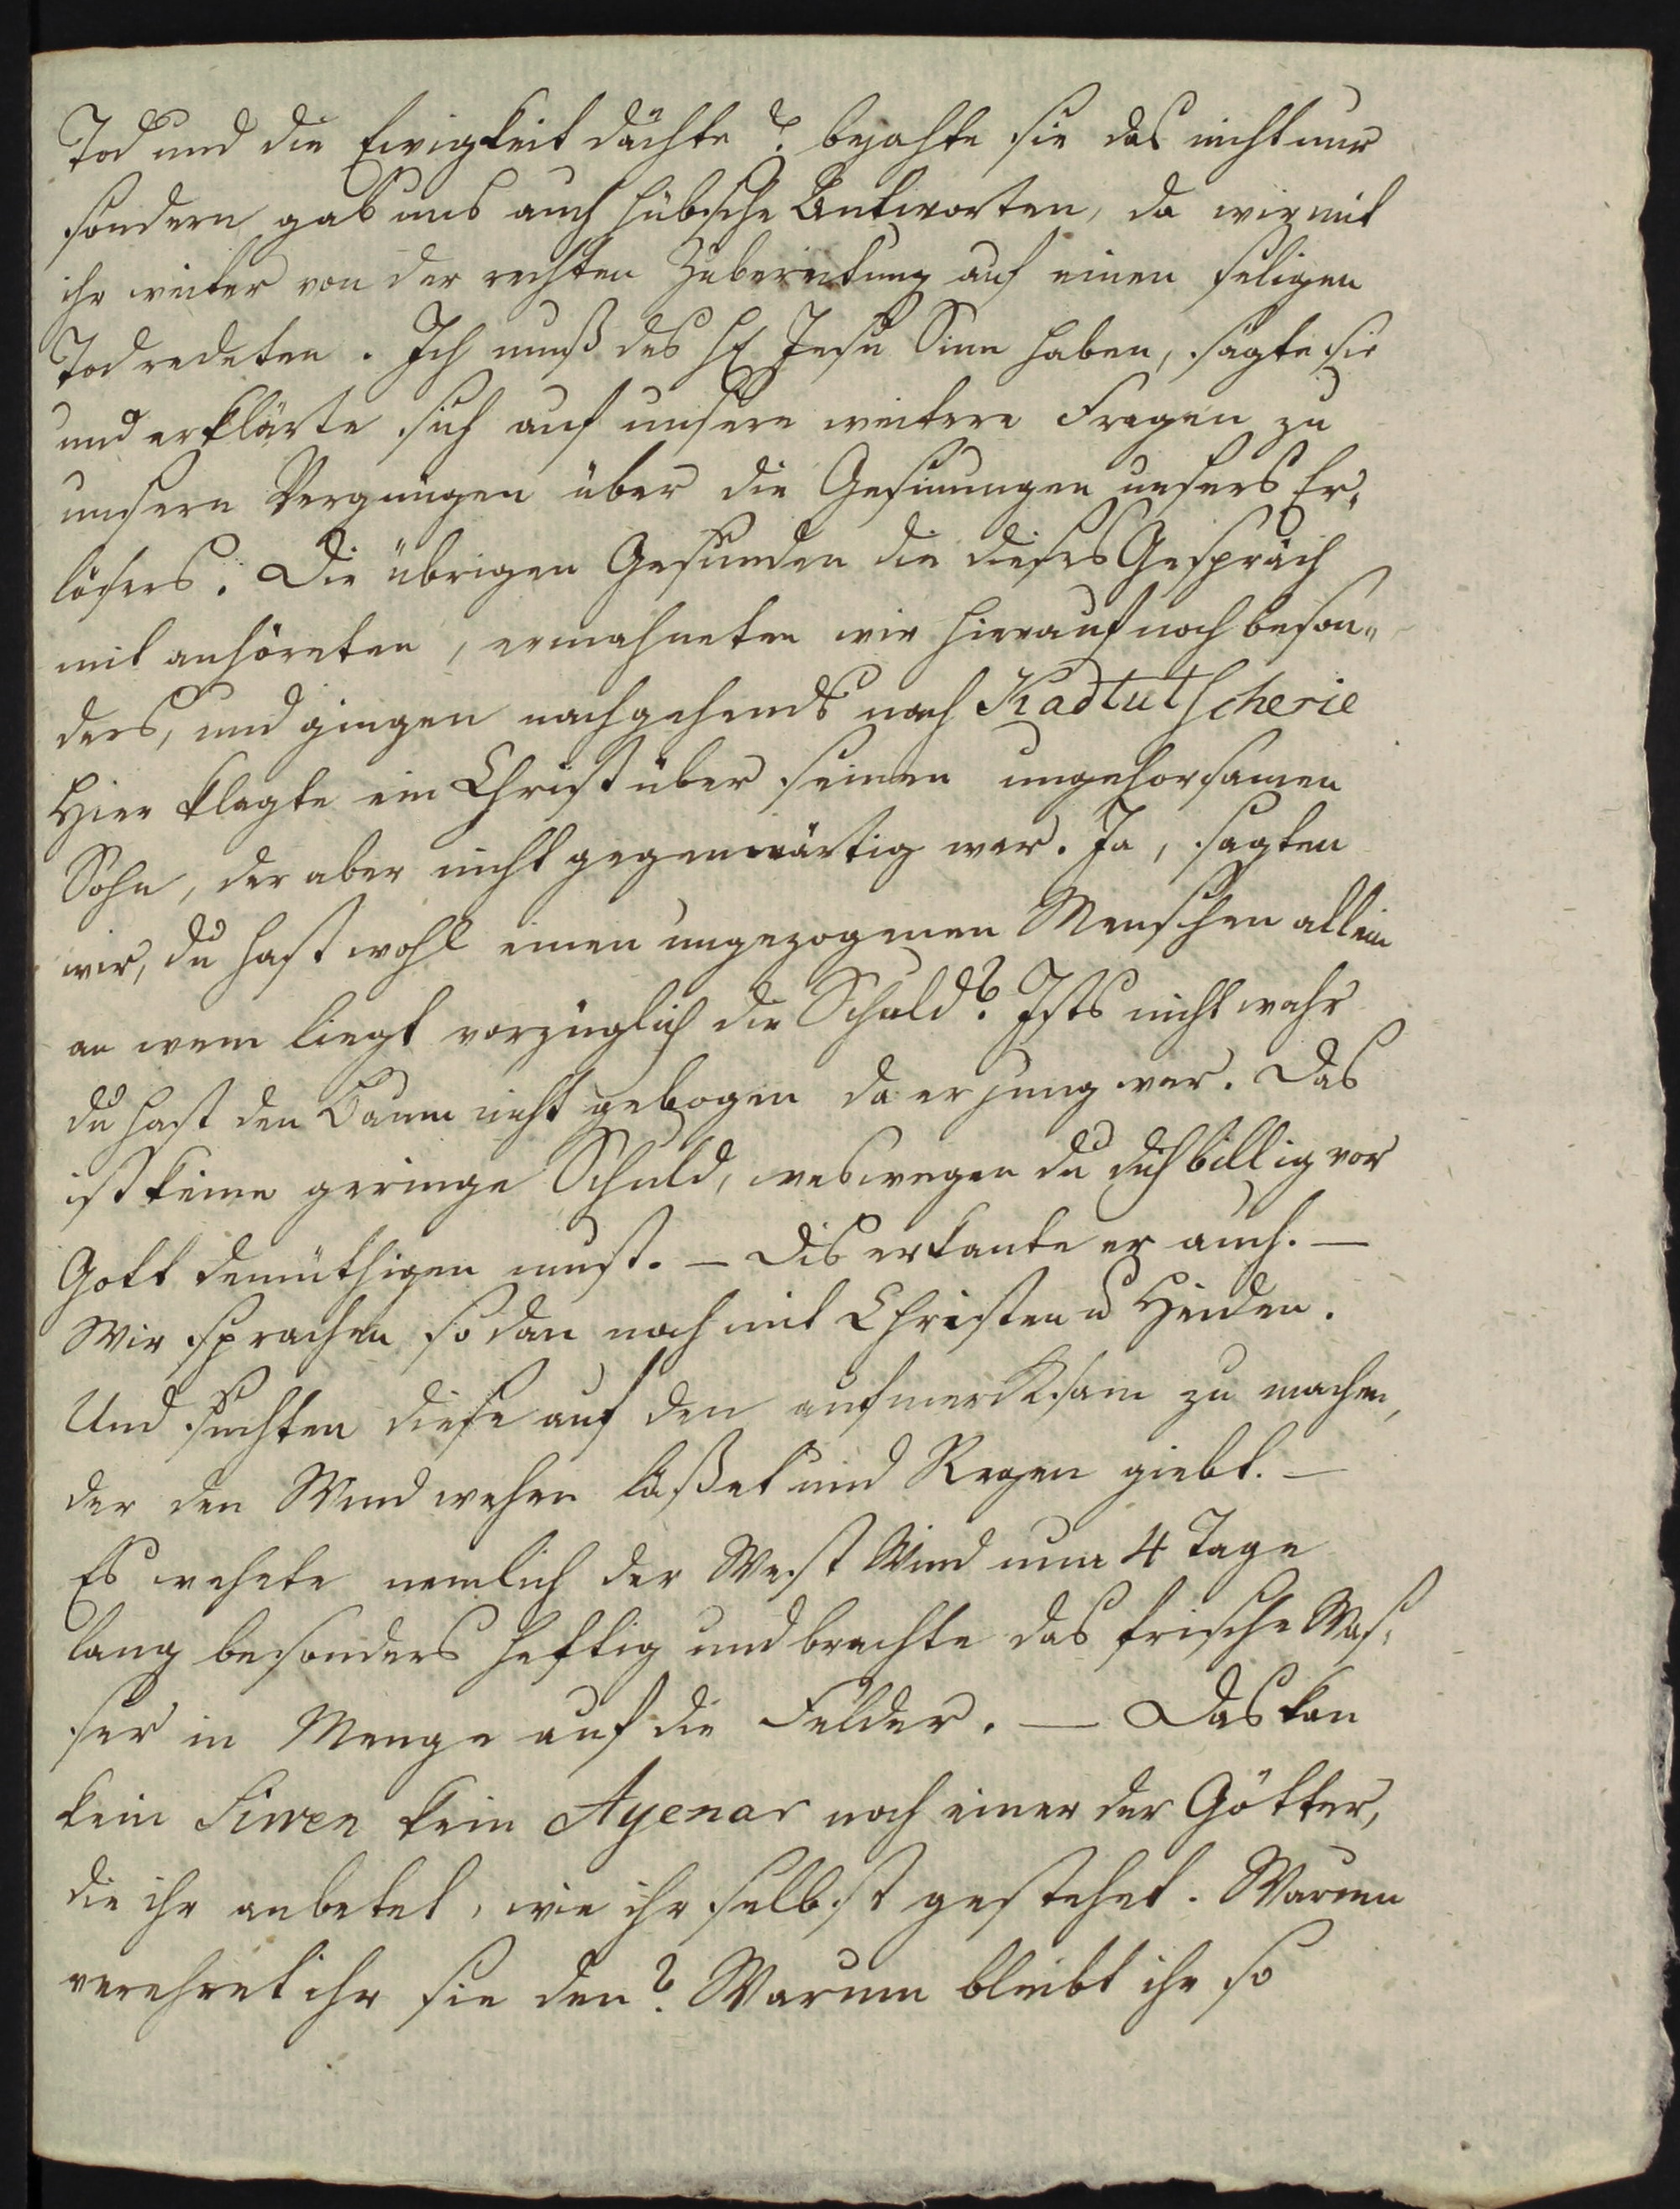 Tod und die Ewigkeit dächte? bejahte sie das nicht nur
sondern gab uns auch hübsche Antworten, da wir mit
ihr weiter von der rechten Zubereitung auf einen seligen
Tod redeten. Ich muß des H Jesu Sinn haben, sagte sie
und erklärte sich auf unsere weitere Fragen zu
unsern Vergnügen über die Gesinnungen unsers Er-
lösers. Die übrigen Gesunden die dieses Gespräch
mit anhöreten, ermahneten wir hierauf noch beson-
ders, und gingen nachgehends nach Kadtutscherie
Hier klagte ein Christ über seinen ungehorsamen
Sohn, der aber nicht gegenwärtig war. Ja, sagten
wir, du hast wohl einen ungezogenen Menschen allein
an wem liegt vorzüglich die Schuld? Ists nicht wahr
du hast den Baum nicht gebogen da er jung war. Das
ist keine geringe Schuld, weswegen du dich billig vor
Gott demüthigen must. – Dis erkante er auch. –
Wir sprachen so dan noch mit Christen u Heiden.
Und suchten diese auf den aufmercksam zu machen,
der den Wind wehen läßet und Regen giebt. –
Es wehete nemlich der West Wind nun 4 Tage
lang besonders heftig und brachte das frische Was-
ser in Menge auf die Felder. — Das kan
kein Siwen kein Ayenar noch einer der Götter,
die ihr anbetet, wie ihr selbst gestehet. Warum
verehret ihr sie den? Warum bleibt ihr so